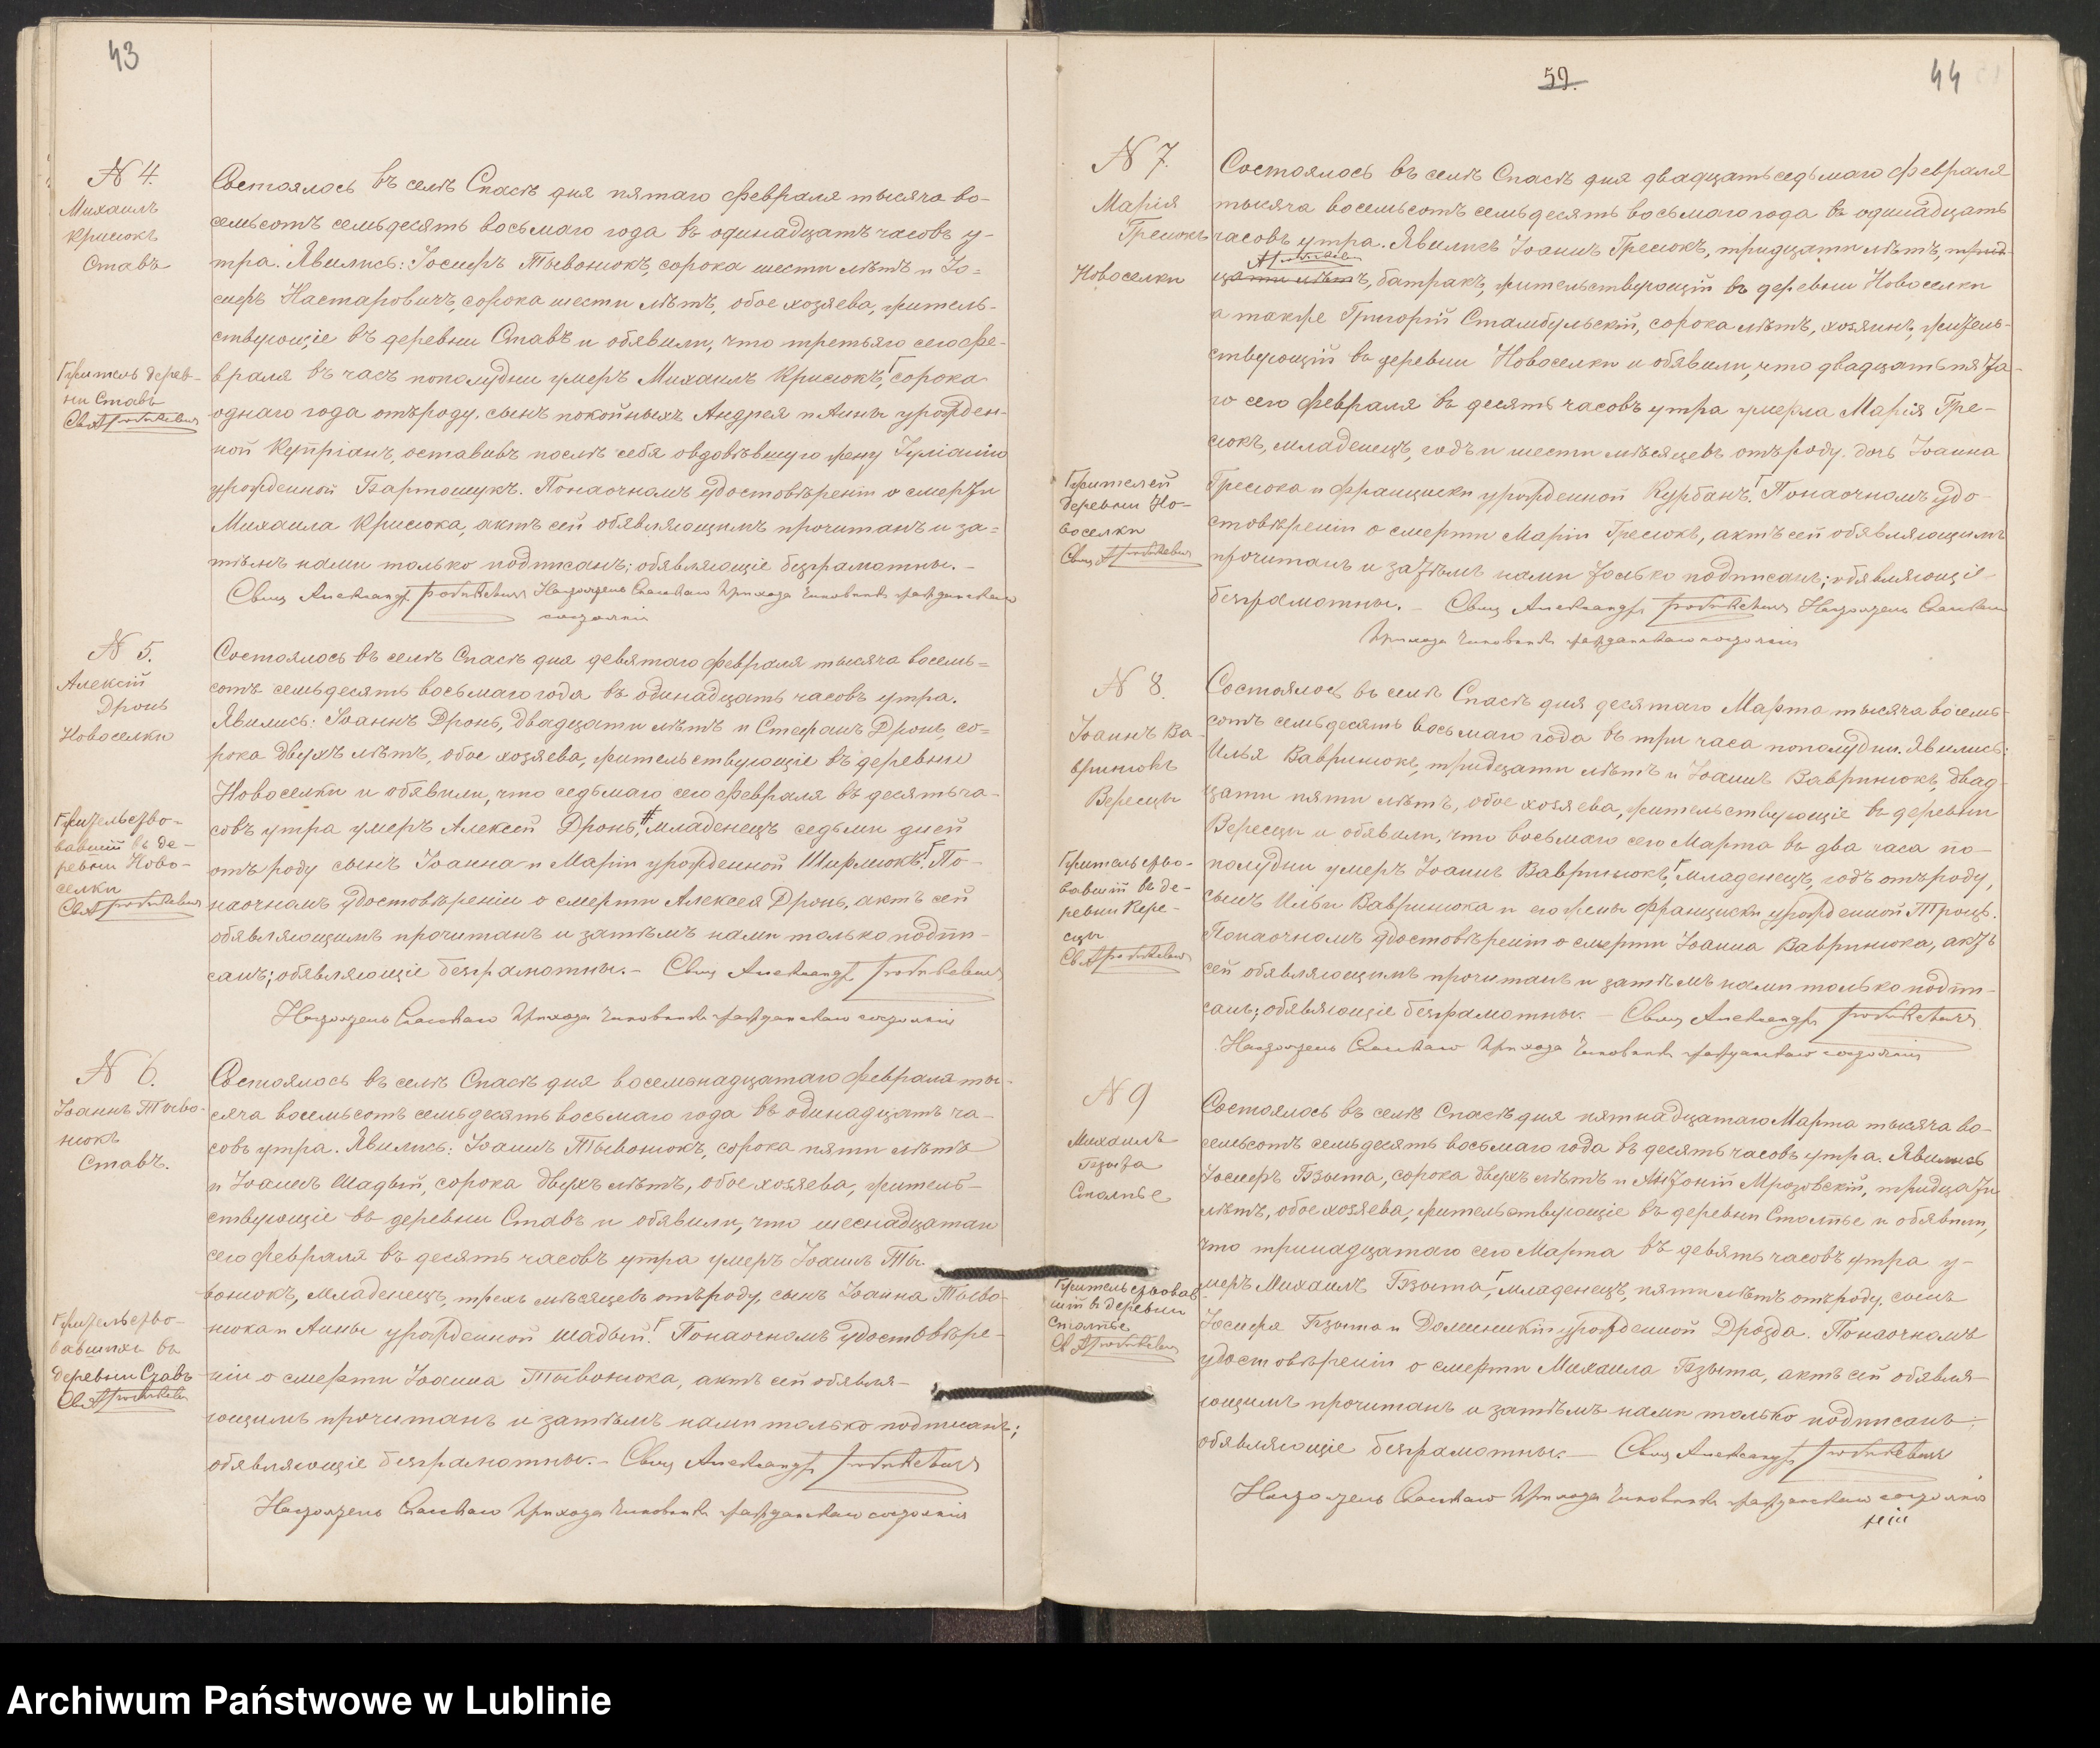 43
N 4.
Михаилъ
Крисюкъ
Ставъ
Состоялось въ селѣ Спасѣ дня пятаго февраля тысяча во-
семьсотъ семьдесятъ восьмаго года въ одинадцать часовъ у-
тра. Явились: Іосифъ Тывонюкъ, сорока шести лѣтъ и Іо-
сифъ Настаровичъ, сорока шести лѣтъ, обое хозяева, житель-
ствующіе въ деревни Ставъ и обявили, что третьяго сего фе-
враля въ часъ пополудни умеръ Михаилъ Крисюкъ, сорока
однаго года отъ роду, сынъ покойныхъ Андрея и Анны урожден-
ной Купріанъ, оставивъ послѣ себя овдовѣвшую жену Іуліанію
урожденной Бартошукъ. По наочномъ удостовѣреніи о смерти
Михаила Крисюка, актъ сей обявляющимъ прочитанъ и за-
тѣмъ нами только подписанъ; обявляющіе безграмотны. -
Свящ Александръ Настоятель Спасскаго Прихода Чиновникъ гражданскаго
состоянія
Житель дерев-
ни Ставъ
N 5.
Алексій
Дронь
Новоселки
Состоялось въ селѣ Спасѣ дня девятаго февраля тысяча восемь-
сотъ семьдесятъ восьмаго года въ одинадцать часовъ утра.
Явились: Іоаннъ Дронь, двадцати лѣтъ и Стефанъ Дронь, со-
рока двухъ лѣтъ, обое хозяева, жительствующіе въ деревни
Новоселки и обявили, что седьмаго сего февраля въ десять ча-
совъ утра умеръ Алексей Дронь, младенецъ седьми дней
отъ роду сынъ Іоанна и Маріи урожденной Шифлюкъ. По
наочномъ удостовѣреніи о смерти Алексея Дронь, актъ сей
обявляющимъ прочитанъ и затѣмъ нами только подпи-
санъ; обявляющіе безграмотны. - Свящ Александръ
Настоятель Спасскаго Прихода Чиновникъ гражданскаго состоянія
Жительство-
вавшій въ де-
ревни Ново-
селки
N 6.
Іоаннъ Тыво-
нюкъ
Ставъ.
Состоялось въ селѣ Спасѣ дня восемнадцатаго февраля ты-
сяча восемьсотъ семьдесятъ восьмаго года въ одинадцать ча-
совъ утра. Явились: Іоаннъ Тывонюкъ, сорока пяти лѣтъ
и Іоаннъ Шадый, сорока двухъ лѣтъ, обое хозяева, житель-
ствующіе въ деревни Ставъ и обявили, что шеснадцатаго
сего февраля въ десять часовъ утра умеръ Іоаннъ Ты-
вонюкъ, младенецъ, трехъ мѣсяцевъ отъ роду, сынъ Іоанна Тыво-
нюка и Анны урожденной Шадый. По наочномъ удостовѣре-
ніи о смерти Іоанна Тывонюка, актъ сей обявля-
ющимъ прочитанъ и затѣмъ нами только подписанъ;
обявляющіе безграмотны. - Свящ Александръ
Настоятель Спасскаго Прихода Чиновникъ гражданскаго состоянія
Жительство-
вавшихъ въ
деревни Ставъ
59.
44
N 7.
Марія
Гресюкъ
Новоселки
Состоялось въ селѣ Спасѣ дня двадцать седьмаго февраля
тысяча восемьсотъ семьдесятъ восьмаго года въ одинадцать
часовъ утра. Явились Іоаннъ Гресюкъ, тридцати лѣтъ, трид-
цати лѣтъ, батракъ, жительствующій въ деревни Новоселки
а также Григорій Стамбульскій, сорока лѣтъ, хозяинъ, житель-
ствующій въ деревни Новоселки и обявили, что двадцать пята-
го сего февраля въ десять часовъ утра умерла Марія Гре-
сюкъ, младенецъ, годъ и шести мѣсяцевъ отъ роду, дочь Іоанна
Гресюка и Францишки урожденной Курбанъ. По наочномъ удо-
стовѣреніи о смерти Маріи Гресюкъ, актъ сей обявляющимъ
прочитанъ и затѣмъ нами только подписанъ; обявляющіе
безграмотны. - Свящ Александръ Настоятель Спасскаго
Прихода Чиновникъ гражданскаго состоянія
Жителей
деревни Но-
воселки
N 8.
Іоаннъ Ва-
вринюкъ
Вересцы
Состоялось въ селѣ Спасѣ дня десятаго Марта тысяча восемь-
сотъ семьдесятъ восьмаго года въ три часа пополудни. Явились:
Илья Вавринюкъ, тридцати лѣтъ и Іоаннъ Вавринюкъ, двад-
цати пяти лѣтъ, обое хозяева, жительствующіе въ деревни
Вересцы и обявили, что восьмаго сего Марта въ два часа по-
полудни умеръ Іоаннъ Вавринюкъ, младенецъ, годъ отъ роду,
сынъ Ильи Вавринюка и его жены Францишки урожденной Троцъ.
По наочномъ удостовѣреніи о смерти Іоанна Вавринюка, актъ
сей обявляющимъ прочитанъ и затѣмъ нами только подпи-
санъ; обявляющіе безграмотны. - Свящ Александръ
Настоятель Спасскаго Прихода Чиновникъ гражданскаго состоянія
Жительство-
вавшій въ де-
ревни Вере-
сцы
N 9
Михаилъ
Бзыта
Столпье
Состоялось въ селѣ Спасѣ дня пятнадцатаго Марта тысяча во-
семьсотъ семьдесятъ восьмаго года въ десять часовъ утра. Явились
Іосифъ Бзыта, сорока двухъ лѣтъ и Антоній Мрозовскій, тридцати
лѣтъ, обое хозяева, жительствующіе въ деревни Столпье и обявили,
что тринадцатаго сего Марта въ девять часовъ утра у-
меръ Михаилъ Бзыта, младенецъ, пяти лѣтъ отъ роду, сынъ
Іосифа Бзыта и Доминикіи урожденной Дрозда. По наочномъ
удостовѣреніи о смерти Михаила Бзыта, актъ сей обявля-
ющимъ прочитанъ и затѣмъ нами только подписанъ:
обявляющіе безграмотны. - Свящ Александръ
Настоятель Спасскаго Прихода Чиновникъ гражданскаго состоянія
Жительствовав-
шій въ деревни
Столпье
Archiwum Państwowe w Lublinie